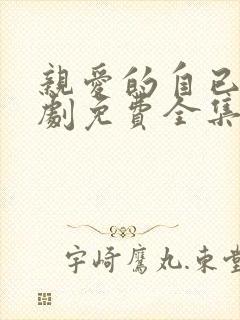 親愛的自已
劇免費全集
宇崎鷹丸.束堂